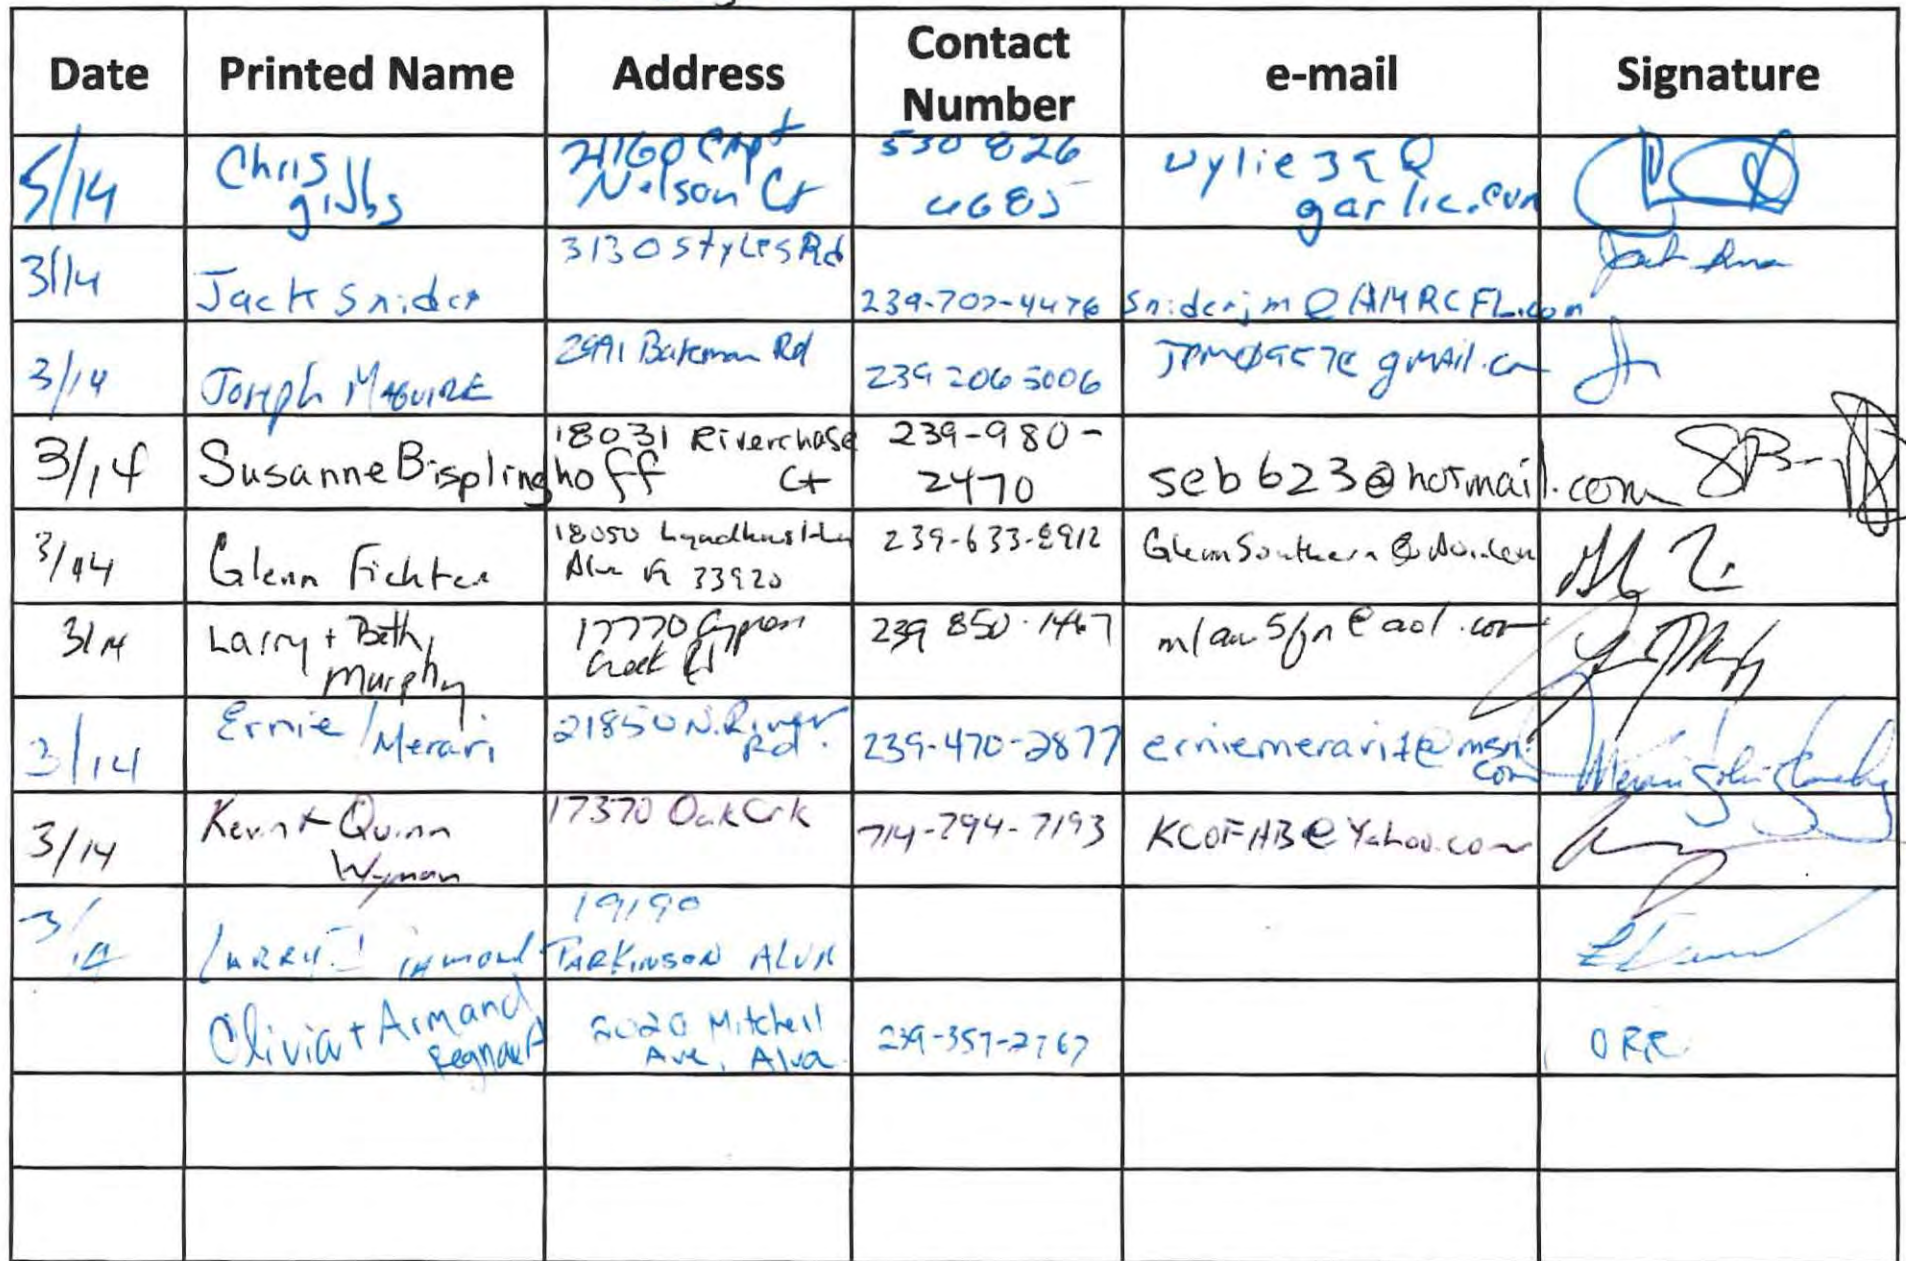 Date Printed Name Address Contact Number e-mail Signature
5/14 Chris gibbs 21160 Capt Nelson Ct 530 826 4685 wylie39@garlic.com
3/14 Jack Snider 3130 Styles Rd 239-707-4476 sniderjm@AMRCFL.com
3/14 Joseph MAGUIRE 2991 Bateman Rd 239 206 5006 gmail.com
3/14 Susanne Bisplinghoff 18031 Riverchase Ct 239-980-2470 seb623@hotmail.com
3/14 Glenn Fichter 18050 Alva Fl 33920 239-633-8912 Glenn Southern
3/14 Larry + Beth Murphy 17770 Cypress Creek Rd 239 850-1467 @aol.com
3/14 Ernie/Merari 21850 N. River Rd. 239-470-2877 erniemerari7@msn.com
3/14 Kevin + Quinn Wyman 17370 Oak Crk 714-794-7193 KCOFHB@Yahoo.com
3/14 LARRY 19190 PARKINSON ALVA
Olivia + Armand Regnaert 2020 Mitchell Ave, Alva 239-357-2767 ORR